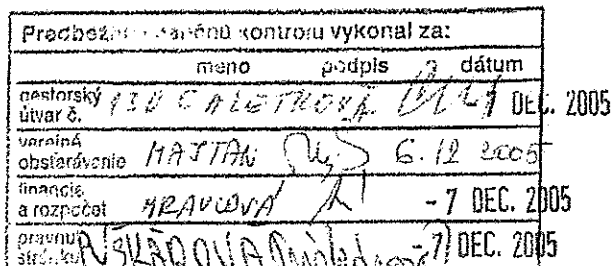 Predbežnú kontrolu vykonal za:
meno podpis a dátum
gestorský
útvar č. 130 DEC. 2005
verejné
obstarávanie MAJTÁN 6. 12 2005
financie
a rozpočet MRAVCOVÁ - 7 DEC. 2005
právnu
stránku - 7 DEC. 2005